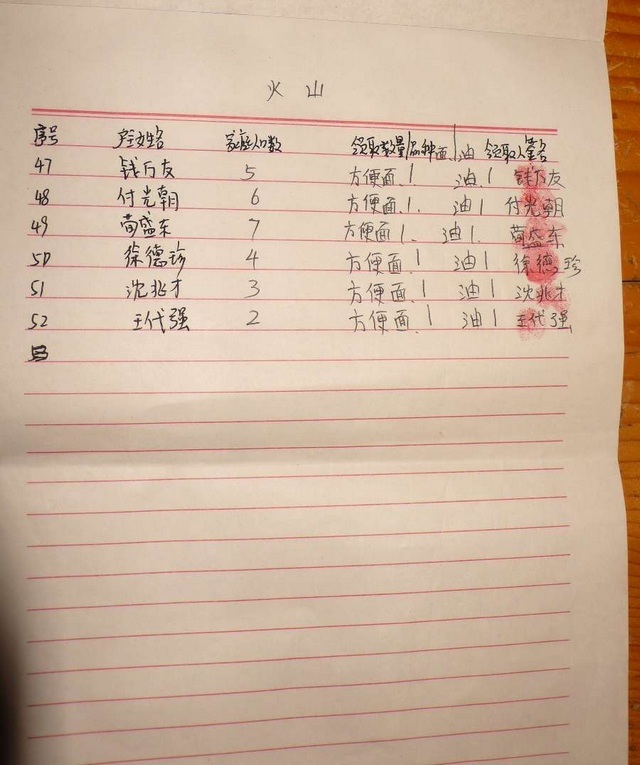 火山
序号 户主姓名 家庭人数 领取数量/品种面 油 领取人签名
47 钱万友 5 方便面1 油1 钱万友
48 付光朝 6 方便面1 油1 付光朝
49 荀盛东 7 方便面1 油1 荀盛东
50 徐德珍 4 方便面1 油1 徐德珍
51 沈兆才 3 方便面1 油1 沈兆才
52 王代强 2 方便面1 油1 王代强